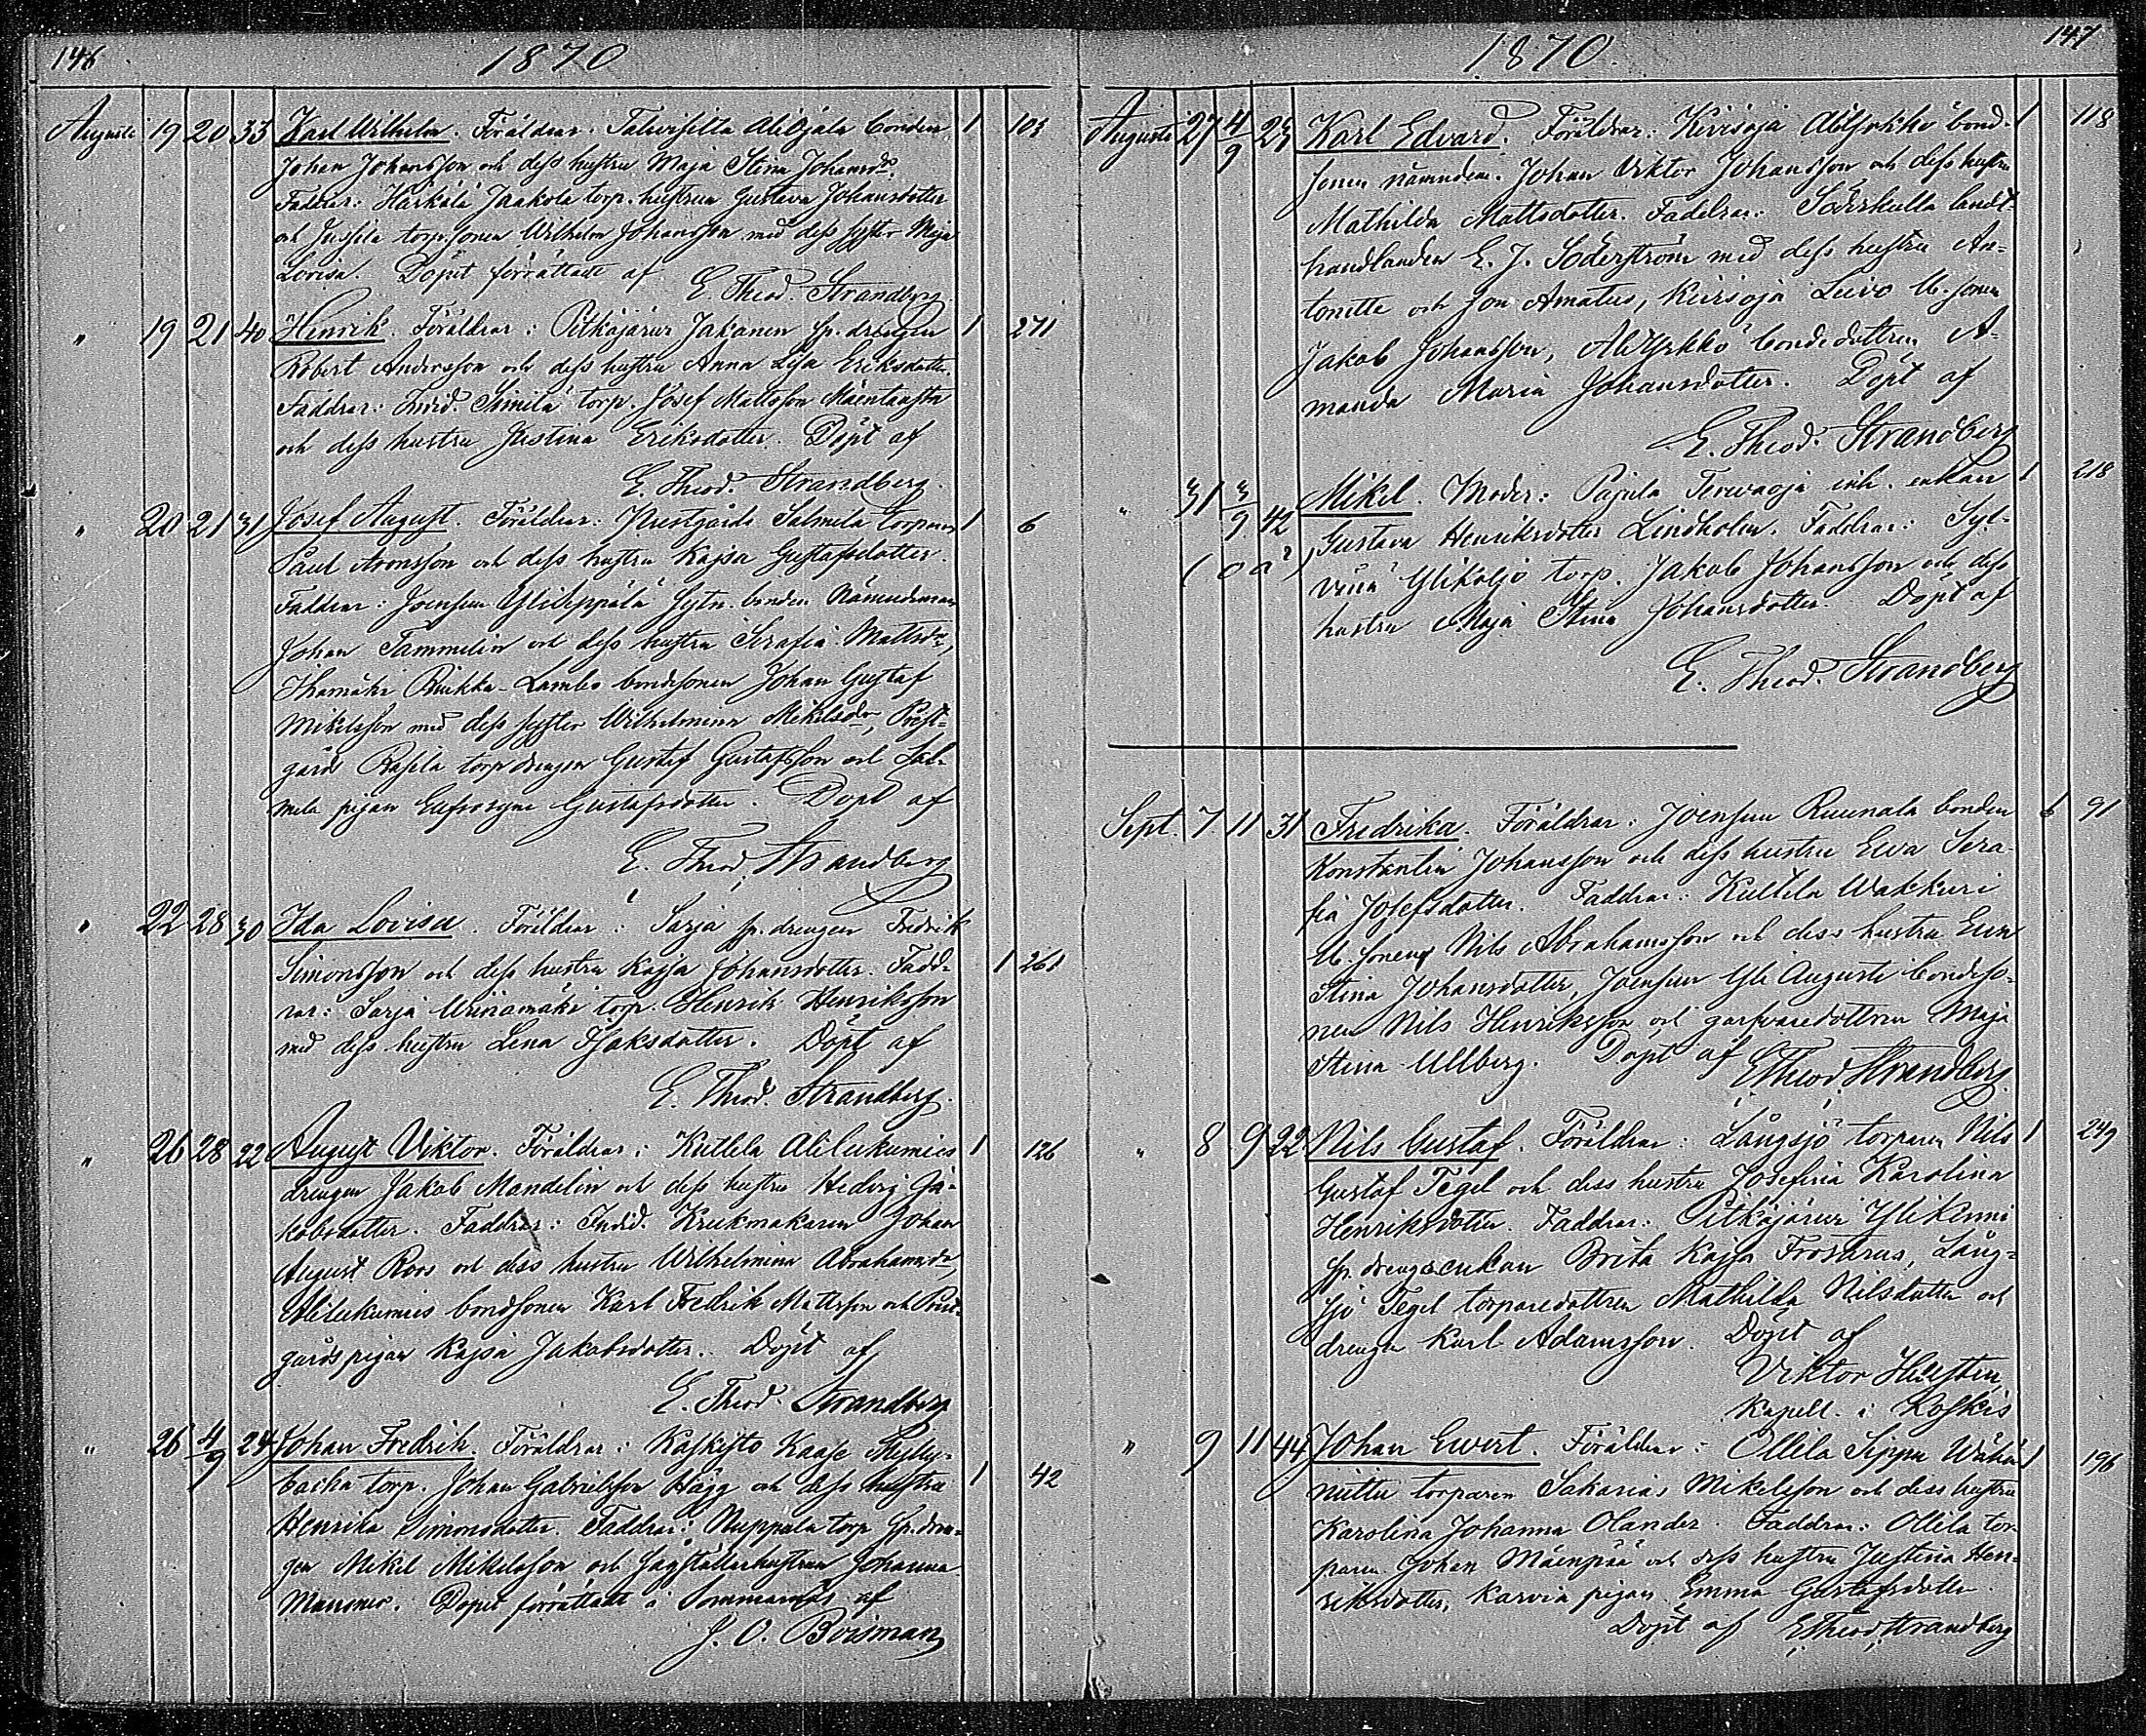 146
1870
Augusti 19 20 33 Karl Wilhelm. Föräldrar: Talvisilla Aliojala bonden 1 103
Johan Johansson och dess hustru Maja Stina Johansdr.
Faddrar: Härkälä Jaakola torp. hustrun Gustava Johansdotter
och Jussila torp.sonen Wilhelm Johansson med dess syster Maja
Lovisa. Döpet förrättadt af
E. Theod. Strandberg.
" 19 21 40 Henrik. Föräldrar: Pitkäjärvi Jakanen sp. drengen 1 271
Robert Andersson och dess hustru Anna Lisa Eriksdotter.
Faddrar: Simila torp. Josef Mattsson Mäentausta
och dess hustru Justina Eriksdotter. Döpt af
E. Theod. Strandberg.
" 20 21 31 Josef August. Föräldrar: Prestgårds Salmela torparen 1 6
Paul Aronsson och dess hustru Kajsa Gustafsdotter.
Faddrar: Joensuu Yliseppälä bonden Nämndeman
Johan Tammelin och dess hustru Serafia Mattsdr,
Ihamäki Lambo bondesonen Johan Gustaf
Mikelsson med dess syster Wilhelmina Mikelsdr, Prest-
gårds Rasila torp drengen Gustaf Gustafsson och Sal-
mela pigan Eufrosyne Gustafsdotter. Döpt af
E. Theod. Strandberg
" 22 28 30 Ida Lovisa. Föräldrar: Sarja sp. drengen Fredrik
Simonsson och dess hustru Kajsa Johansdotter. Fadd- 1 261
rar: Sarja torp. Henrik Henriksson
med dess hustru Lena Isaksdotter. Döpt af
E. Theod. Strandberg.
" 26 28 22 August Viktor. Föräldrar: Kultela Alilukumies 1 126
drengen Jakob Mandelin och dess hustru Hedvig Ja-
kobsdotter. Faddrar: Krukmakaren Johan
August Roos och dess hustru Wilhelmina Abrahamsdr,
Alilukumies bondsonen Karl Fredrik Mattsson och Prest-
gårds pigan Kajsa Jakobsdotter. Döpt af
E. Theod. Strandberg
" 26 4/9 24 Johan Fredrik. Föräldrar: Kaskisto Kaase
torp. Johan Gabrielsson Hägg och dess hustru 1 42
Henrika Simonsdotter. Faddrar: Nuppala torp sp. dren-
gen Mikel Mikelsson och hustrun Johanna
Manner. Döpet förrättadt i Sommarnäs af
J. O. Boisman
147
1870.
Augusti 27 4/9 25 Karl Edvard. Föräldrar: Kirisoja Aliyrkkö bond- 1 118
sonen nämndem. Johan Viktor Johansson och dess hustru
Mathilda Mattsdotter. Faddrar: Söderkulla landt-
handlanden E. J. Söderström med dess hustru An-
tonette och son Amatus, Kirisoja Luvo U. sonen
Jakob Johansson, Aliyrkkö bondedottren A-
manda Maria Johansdotter. Döpt af
E. Theod. Strandberg
" 31 3/9 42 Mikel. Moder: Pajula Tervaoja inh. enkan 1 218
(o ä) Gustava Henriksdotter Lindholm. Faddrar: Syl-
vänä Ylikoljo torp. Jakob Johansson och dess
hustru Maja Stina Johansdotter. Döpt af
E. Theod. Strandberg
Sept. 7 11 31 Fredrika. Föräldrar: Joensuu Ruunala bonden 6 91
Konstantin Johansson och dess hustru Eva Sera-
fia Josefsdotter. Faddrar: Kultela Wakkuri
U. sonen Nils Abrahamsson och dess hustru Eva
Stina Johansdotter, Joensuu Yli Augusti bondeso-
nen Nils Henriksson och garfvaredottren Maja
Stina Ullberg. Döpt af E Theod. Strandberg.
" 8 9 22 Nils Gustaf. Föräldrar: Långsjö torparen Nils 1 249
Gustaf Tegel och dess hustru Josefina Karolina
Henriksdotter. Faddrar: Pitkäjärvi
sp. drengsenkan Brita Kajsa Frosterus, Lång-
sjö Tegel torparedottren Mathilda Nilsdotter och
drengen Karl Adamsson. Döpt af
Viktor
Kapell. i Koskis
" 9 11 44 Johan Evert. Föräldrar: Ollila Seppä Wähä- 1 196
niittu torparen Sakarias Mikelsson och dess hustru
Karolina Johanna Olander. Faddrar: Ollila tor-
paren Johan Mäenpää och dess hustru Justina Hen-
riksdotter, Karvia pigan Emma Gustafsdotter.
Döpt af E Theod. Strandberg